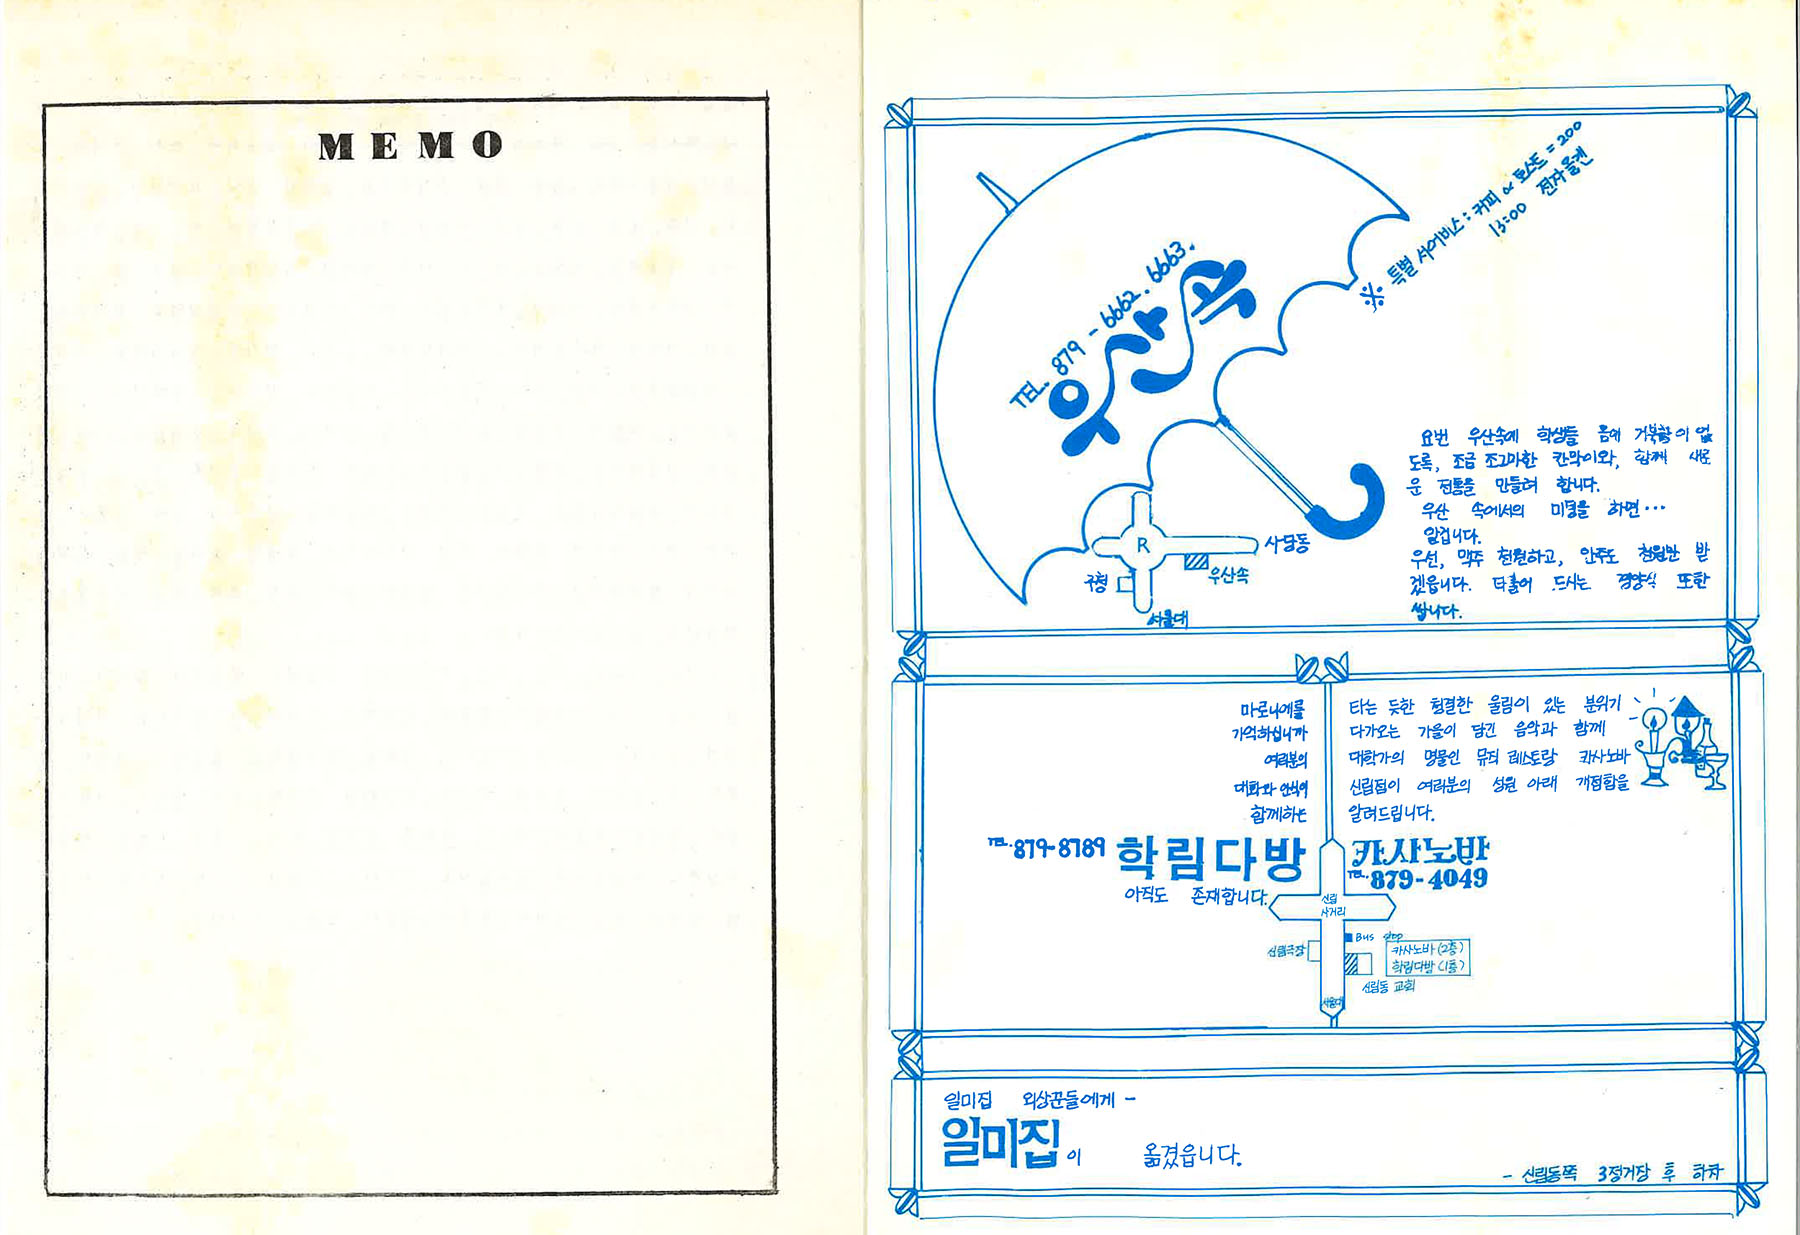 MEMO
※ 특별 써어비스 : 커피 ∝ 토스트 = 200
13:00 전자올겐
TEL. 879 - 6662. 6663.
우산속
요번 우산속에 학생들 몸에 거북함이 없
도록, 조금 조그마한 칸막이와, 함께 새로
운 전통을 만들려 합니다.
우산 속에서의 미팅을 하면...
알겁니다.
우선, 맥주 천원하고, 안주도 천원만 받
겠읍니다. 더불어 드시는 경양식 또한
쌉니다.
R
사당동
우산속
구청
서울대
마로니에를
기억하십니까
여러분의
대화와 안식이
함께하는
TEL. 879-8789
학림다방
아직도 존재합니다.
타는 듯한 정결한 울림이 있는 분위기
다가오는 가을이 담긴 음악과 함께
대학가의 명물인 뮤직 레스토랑 카사노바
신림점이 여러분의 성원 아래 개점함을
알려드립니다.
카사노바
TEL. 879-4049
신림
사거리
Bus stop
신림극장
카사노바 (2층)
학림다방 (1층)
신림동 교회
서울대
일미집 외상꾼들에게 -
일미집이 옮겼읍니다.
- 신림동쪽 3정거장 후 하차